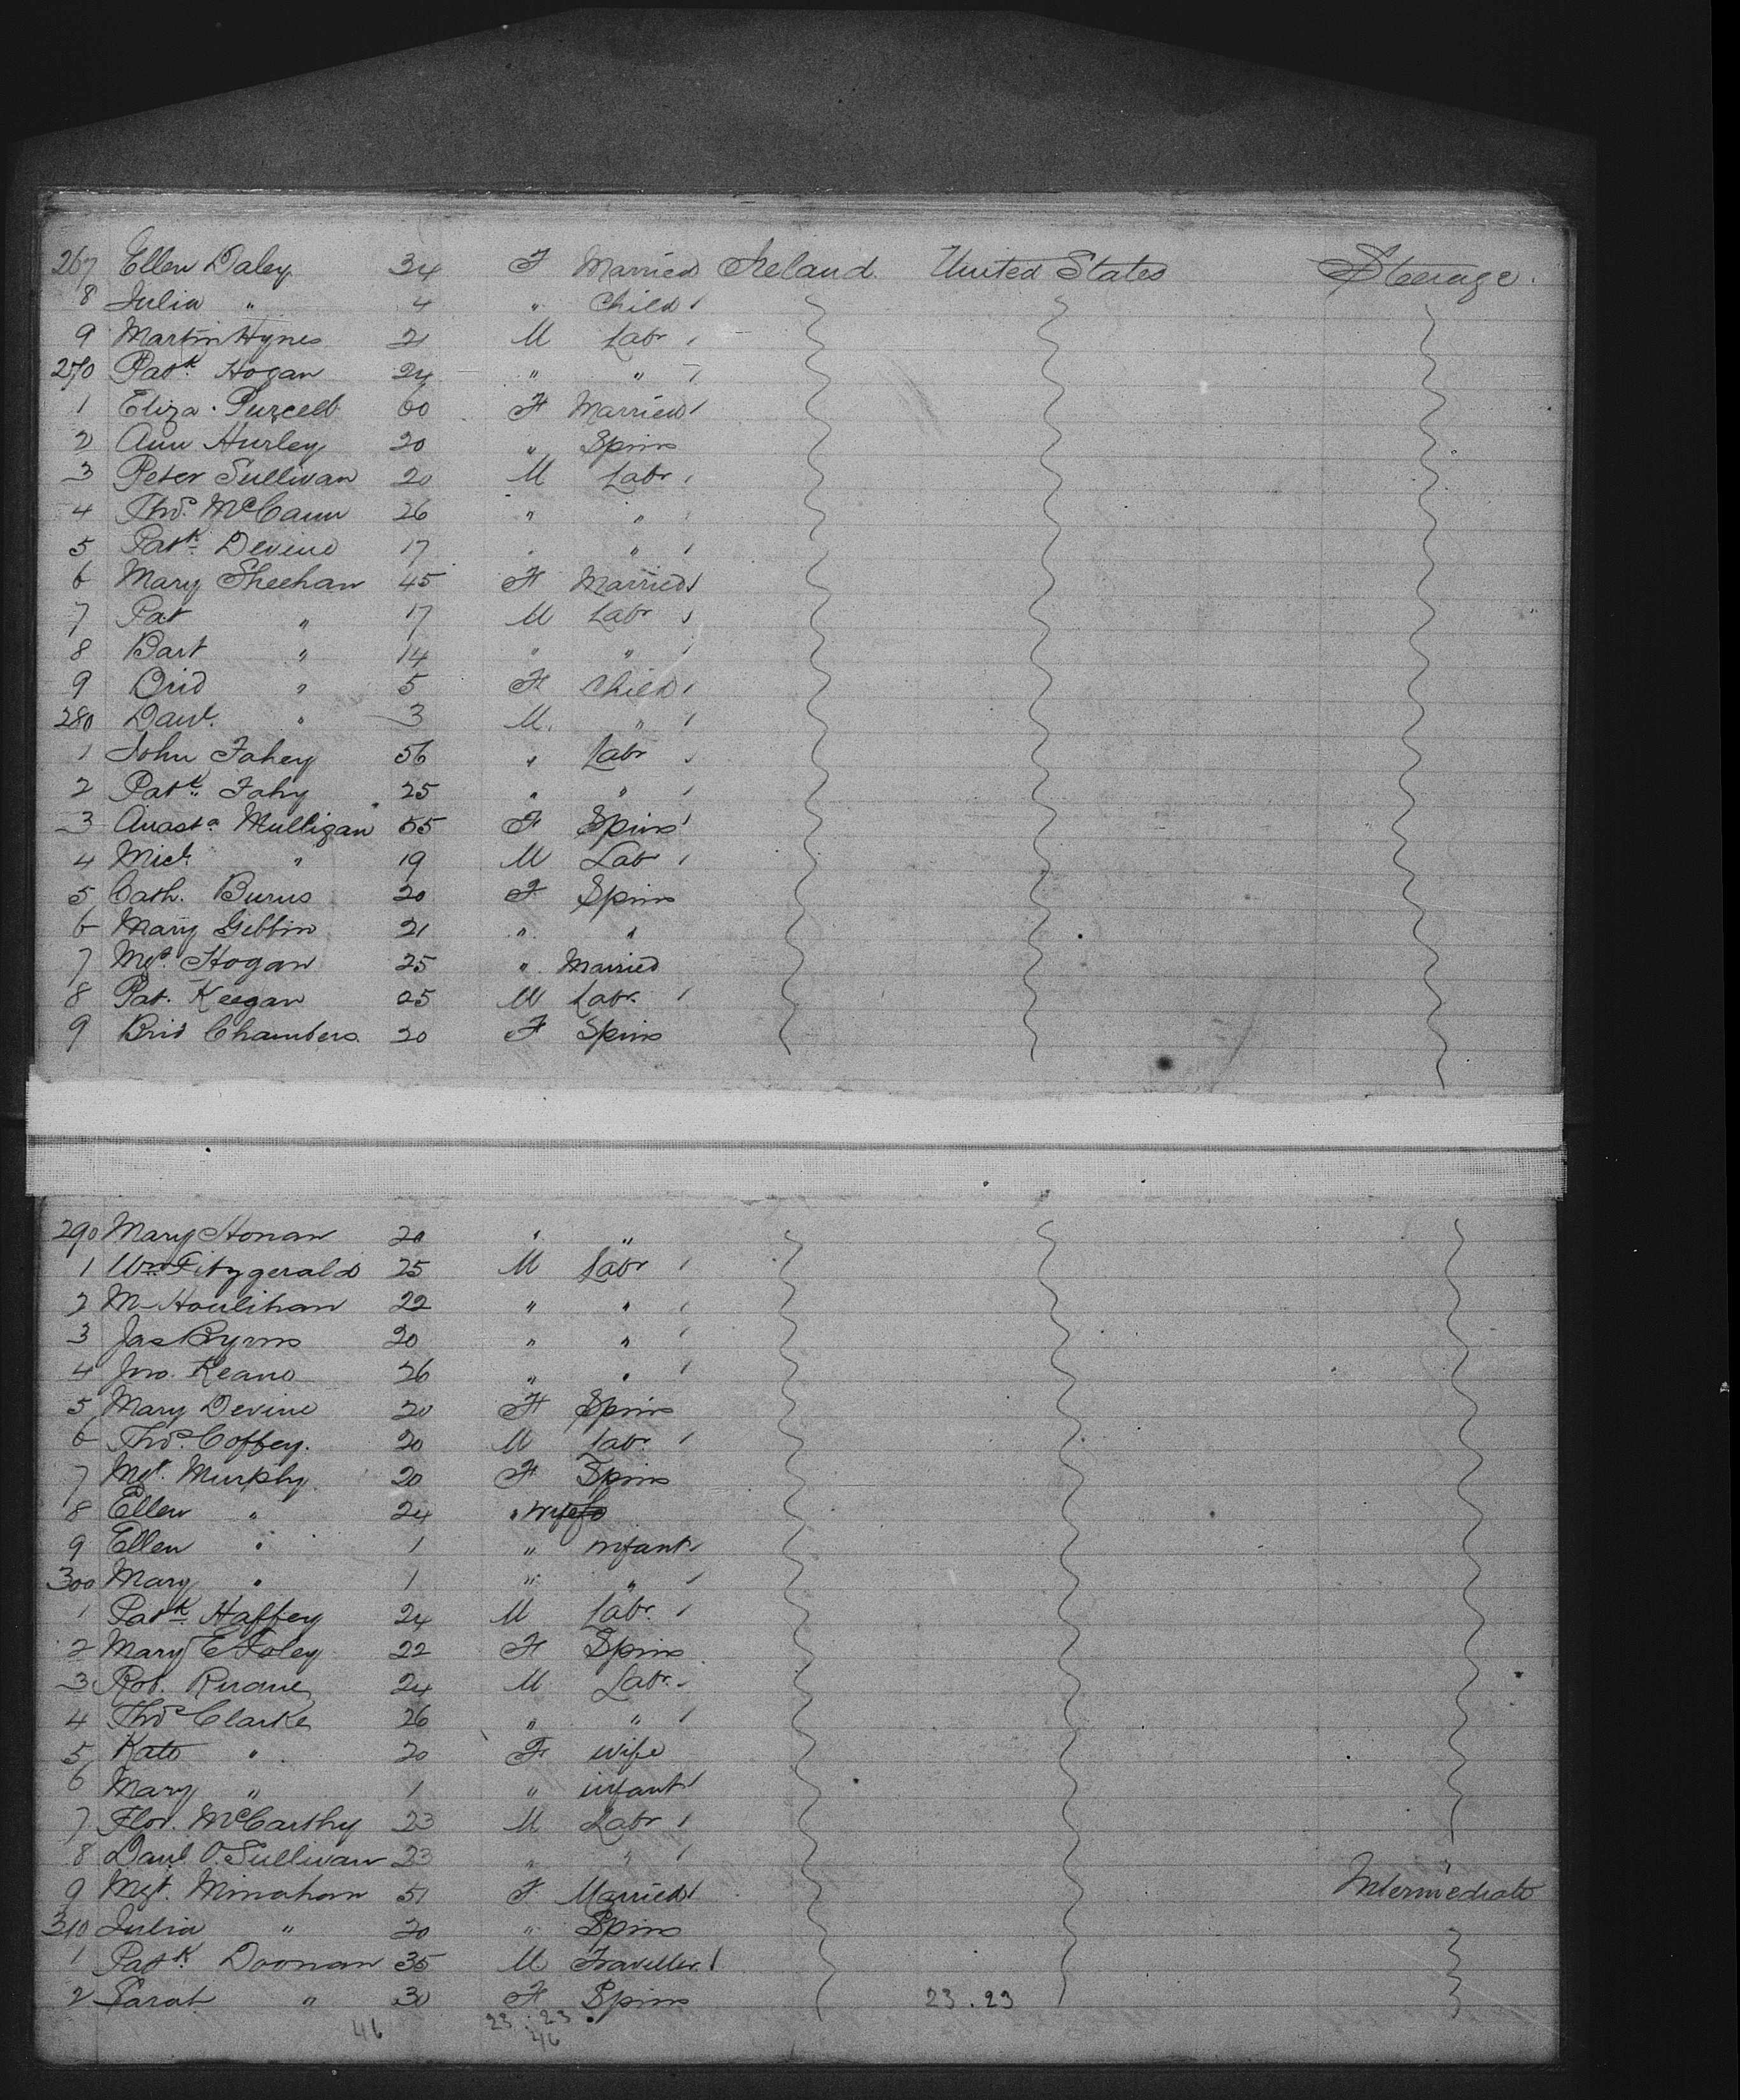 267 Ellen Daley 34 F Married Ireland United States Steerage.
8 Julia " 4 " Child
9 Martin Hynes 21 M Labr
270 Patk Hogan 24 " "
1 Eliza Purcell 60 F Married
2 Ann Hurley 20 " Spins
3 Peter Sullivan 20 M Labr
4 Thos. McCann 26 " "
5 Patk Devine 17 " "
6 Mary Sheehan 45 F Married
7 Pat " 17 M Labr
8 Bart " 14 " "
9 Brid " 5 F Child
280 Danl. " 3 M. "
1 John Fahey 56 " Labr
2 Patk. Fahy 25 " "
3 Anasta Mulligan 55 F Spins
4 Michl. " 19 M Labr
5 Cath. Burns 20 F Spins
6 Mary Gibbin 21 " "
7 Mgt. Hogan 25 " Married
8 Pat. Keegan 25 M Labr.
9 Brid Chambers 20 F Spins
290 Mary Honan 20 " "
1 Wm Fitzgerald 25 M Labr
2 M Houlihan 22 " "
3 Jas Byrns 20 " "
4 Jno. Keane 26 " "
5 Mary Devine 20 F Spins
6 Thos. Coffey. 20 M Labr.
7 Mgt. Murphy 20 F Spins
8 Ellen " 24 " wife
9 Ellen " 1 " infant
300 Mary " 1 " "
1 Patk Haffey 24 M Labr.
2 Mary E Foley 22 F Spins
3 Rob. Ruane 24 M Labr.
4 Thos Clarke 26 " "
5 Kate " 20 F wife
6 Mary " 1 " infant
7 Flor. McCarthy 23 M Labr
8 Danl. O'Sullivan 23 " "
9 Mgt. Minahan 51 F Married Intermediate
310 Julia " 20 " Spins
1 Patk Doonan 35 M Traveller
2 Sarah " 30 F Spins 23.23
46 23.23
46